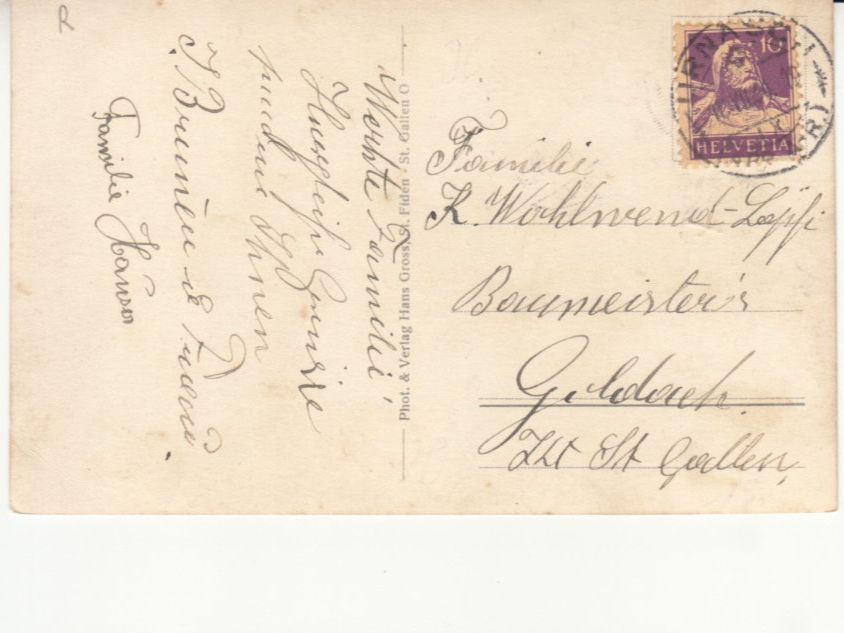 R
Werte Familie
Herzliche Grüsse
senden Ihnen
J. Brunner & Frau.
Familie Hauser
Phot. & Verlag Hans Gross, St. Fiden - St. Gallen O
10
HELVETIA
URNÄSCH
Familie
K. Wohlwend-
Baumeister's
Goldach.
Kt St Gallen,